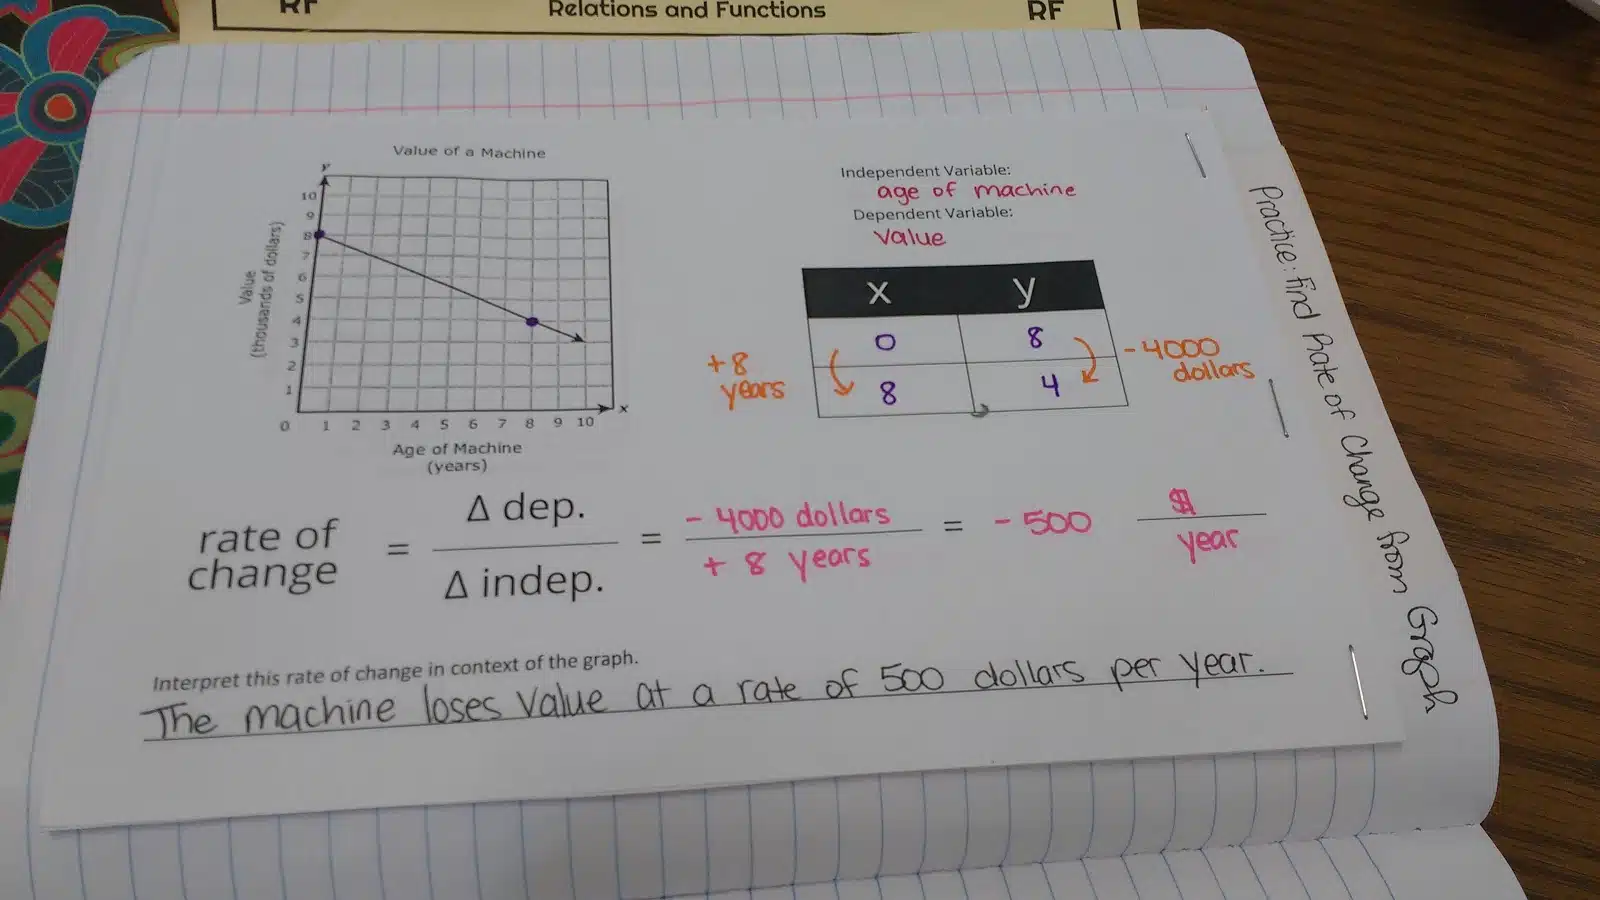 RF Relations and Functions RF
Value of a Machine
y
10
9
8
7
6
5
4
3
2
1
Value
(thousands of dollars)
0 1 2 3 4 5 6 7 8 9 10 x
Age of Machine
(years)
Independent Variable:
age of machine
Dependent Variable:
value
x y
0 8
8 4
+8
years
- 4000
dollars
rate of
change
= Δ dep.
Δ indep.
= - 4000 dollars
+ 8 years
= - 500 $
year
Interpret this rate of change in context of the graph.
The machine loses value at a rate of 500 dollars per year.
Practice: Find Rate of Change from Graph